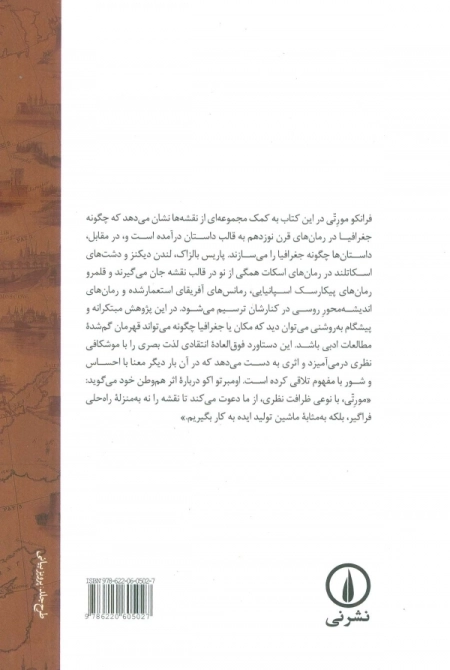 فرانکو مورتّی در این کتاب به کمک مجموعه‌ای از نقشه‌ها نشان می‌دهد که چگونه
جغرافیا در رمان‌های قرن نوزدهم به قالب داستان درآمده است و، در مقابل،
داستان‌ها چگونه جغرافیا را می‌سازند. پاریس بالزاک، لندن دیکنز و دشت‌های
اسکاتلند در رمان‌های اسکات همگی از نو در قالب نقشه جان می‌گیرند و قلمرو
رمان‌های پیکارسک اسپانیایی، رمانس‌های آفریقای استعمارشده و رمان‌های
اندیشه‌محور روسی در کنارشان ترسیم می‌شود. در این پژوهش مبتکرانه و
پیشگام به‌روشنی می‌توان دید که مکان یا جغرافیا چگونه می‌تواند قهرمان گم‌شدهٔ
مطالعات ادبی باشد. این دستاورد فوق‌العادهٔ انتقادی لذت بصری را با موشکافی
نظری درمی‌آمیزد و اثری به دست می‌دهد که در آن بار دیگر معنا با احساس
و شور با مفهوم تلاقی کرده است. اومبرتو اکو دربارهٔ اثر هم‌وطن خود می‌گوید:
«مورتّی، با نوعی ظرافت نظری، از ما دعوت می‌کند تا نقشه را نه به‌منزلهٔ راه‌حلی
فراگیر، بلکه به‌مثابهٔ ماشین تولید ایده به کار بگیریم.»
طرح جلد: پرویز بیانی
ISBN 978-622-06-0502-7
9 786220 605027
نشر نی